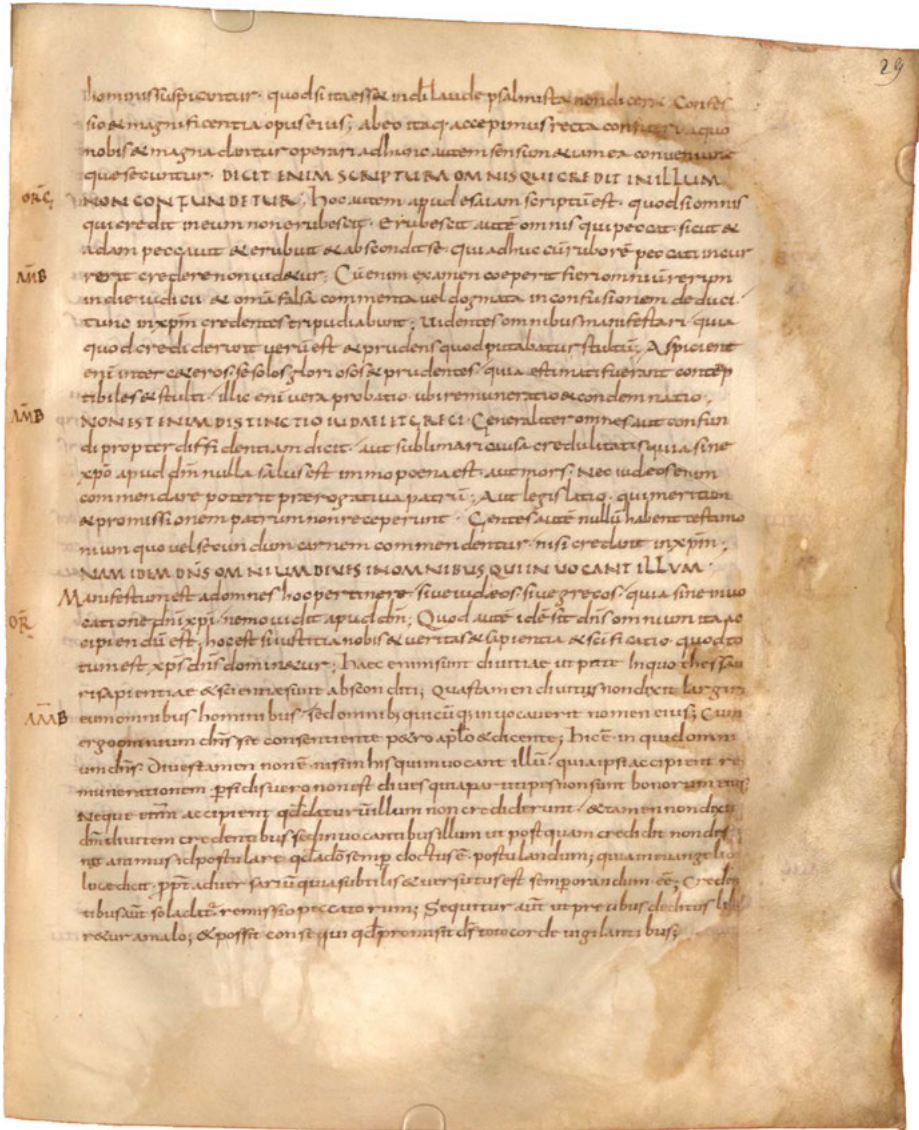 29
hominis suspicantur. quod si ita ess& in dī laude psalmista non dicer& Confes
sio & magnificentia opus eius; ab eo itaq. accepimus recta confiteri a quo
nobis & magna dantur operari ad hunc autem sensum & iam ea conveniunt
que secuntur. DICIT ENIM SCRIPTURA OMNIS QUI CREDIT IN ILLUM
ORĒ NON CONFUNDETUR; hoc autem apud esaiam scriptū est. quod si omnis
qui credit in eum non erubescit. Erubescit autē omnis qui peccat. sicut &
adam peccavit & erubuit & abscondit se. qui adhuc cū ruborē peccati incur
rerit credere non vid&ur; Cū enim examen coeperit fieri omniū rerum
AMB in die iudicii & omā falsa commenta vel dogmata in confusionem deduci.
tunc in xpm̄ credentes tripudiabunt; Videntes omnibus manifestari quia
quod crediderunt verū est & prudens quod putabatur stultū; Aspicient
enī inter c&eros se solos gloriosos & prudentes. quia estimati fuerant contēp
tibiles & stulti. illic enī vera probatio ubi remuneratio & condemnatio,
AMB NON EST ENIM DISTINCTIO IUDAEI ET GRECI. Generaliter omnes aut confun
di propter diffidentiam dicit. aut sublimari causa credulitatis quia sine
xpō apud dm̄ nulla salus est immo poena est. aut mors; Nec iudeos enim
commendare poterit praerogativa patrū. Aut legislatio. qui meritum
& promissionem patrum non receperunt. Gentes autē nullū habent testimo
nium quo vel secundum carnem commendentur. nisi credant in xpm̄;
NAM IDEM DN̄S OMNIUM DIVES IN OMNIBUS QUI INVOCANT ILLUM.
Manifestum est ad omnes hoc pertinere sive iudeos sive grecos. quia sine invo
OR̄ catione dnī xpī. nemo vidit apud dm̄; Quod autē idē sit dn̄s omnium ita ac
cipiendū est, hoc est si iustitia nobis & veritas & sapientia & scīficatio quod to
tum est xps̄ dn̄s domin&ur; haec enim sunt divitiae ut patr& In quo thesau
ri sapientiae & scientiae sunt absconditi; Quas tamen divitias non dixit largiri
AMB eum omnibus hominibus. sed omnib; quicūq; invocaverit nomen eius; Cum
ergo omnium dn̄s sit consentiente p&ro apłō & dicente; hic ē. inquid omni
um dn̄s. Dives tamen non ē. nisi in his qui invocant illū. quia ipsi accipient re
munerationem perfidis vero non est dives quia participes non sunt bonorum eius
Neque enim accipient qd̄ datur in illum non crediderunt. & tamen non dixit
dm̄ divitem credentibus sed invocantibus illum ut postquam credidit non desi
nat animus id postulare qd̄ a dō semp doctus ē. postulandum; quia in euangelio
luce dicit. ppt adversariū quia subtilis & versutus est semp orandum eē; Creden
tibus aūt sola dat. remissio peccatorum; Sequitur aūt ut precibus deditus libe
r&ur a malo; & possit consequi qd̄ promisit dś toto corde vigilantibus;